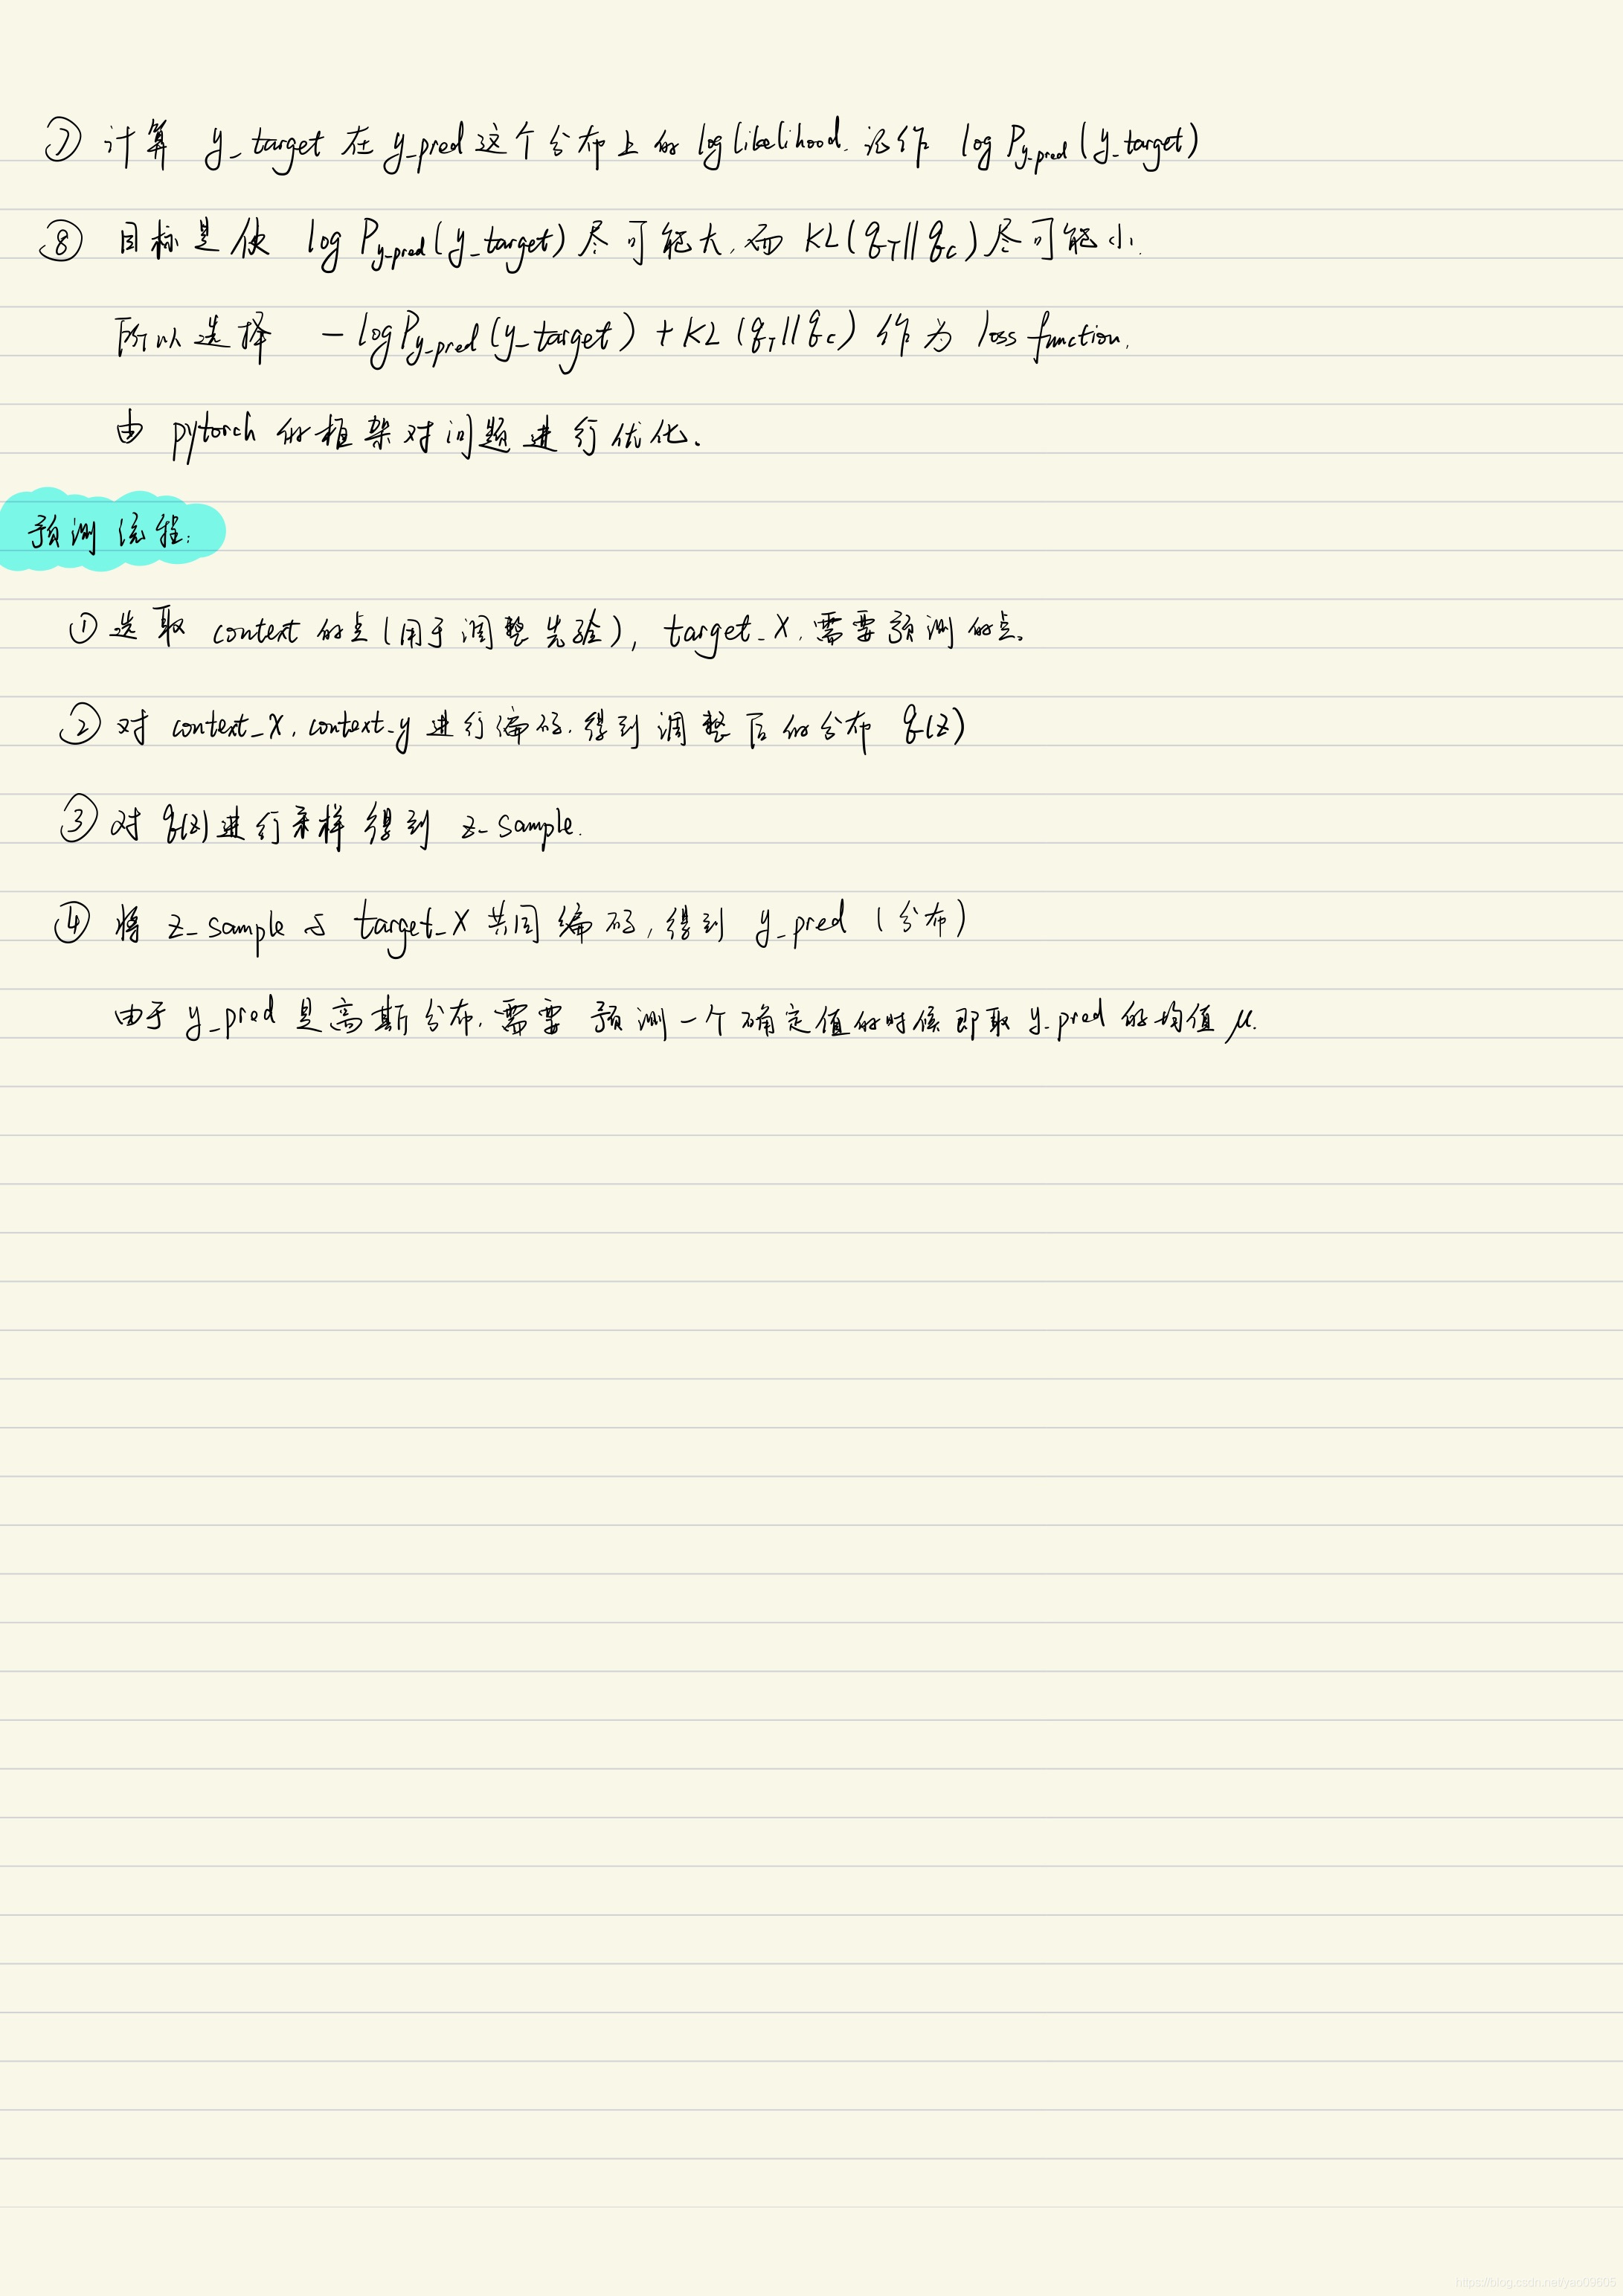 ⑦ 计算 y_target 在 y_pred 这个分布上的 log likelihood. 记作 log P_{y_pred}(y_target)
⑧ 目标是使 log P_{y_pred}(y_target) 尽可能大, 而 KL(q_T||q_C) 尽可能小.
所以选择 -log P_{y_pred}(y_target) + KL(q_T||q_C) 作为 loss function.
由 pytorch 的框架对问题进行优化.
预测流程:
① 选取 context 的点(用于调整先验), target_X, 需要预测的点。
② 对 context_X, context_y 进行编码, 得到调整后的分布 q(z)
③ 对 q(z) 进行采样得到 z_sample.
④ 将 z_sample 与 target_X 共同编码, 得到 y_pred (分布)
由于 y_pred 是高斯分布, 需要预测一个确定值的时候即取 y_pred 的均值 μ.
https://blog.csdn.net/yao09605